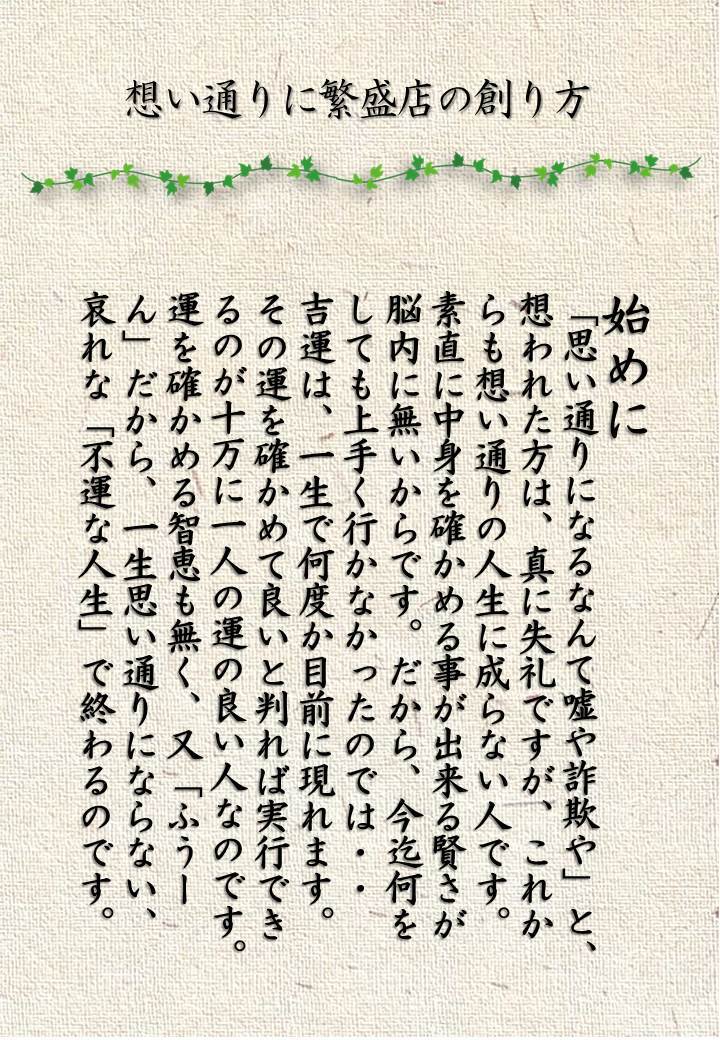 想い通りに繁盛店の創り方
始めに
「思い通りになるなんて嘘や詐欺や」と、
想われた方は、真に失礼ですが、これか
らも想い通りの人生に成らない人です。
素直に中身を確かめる事が出来る賢さが
脳内に無いからです。だから、今迄何を
しても上手く行かなかったのでは・・
吉運は、一生で何度か目前に現れます。
その運を確かめて良いと判れば実行でき
るのが十万に一人の運の良い人なのです。
運を確かめる智恵も無く、又「ふうー
ん」だから、一生思い通りにならない、
哀れな「不運な人生」で終わるのです。